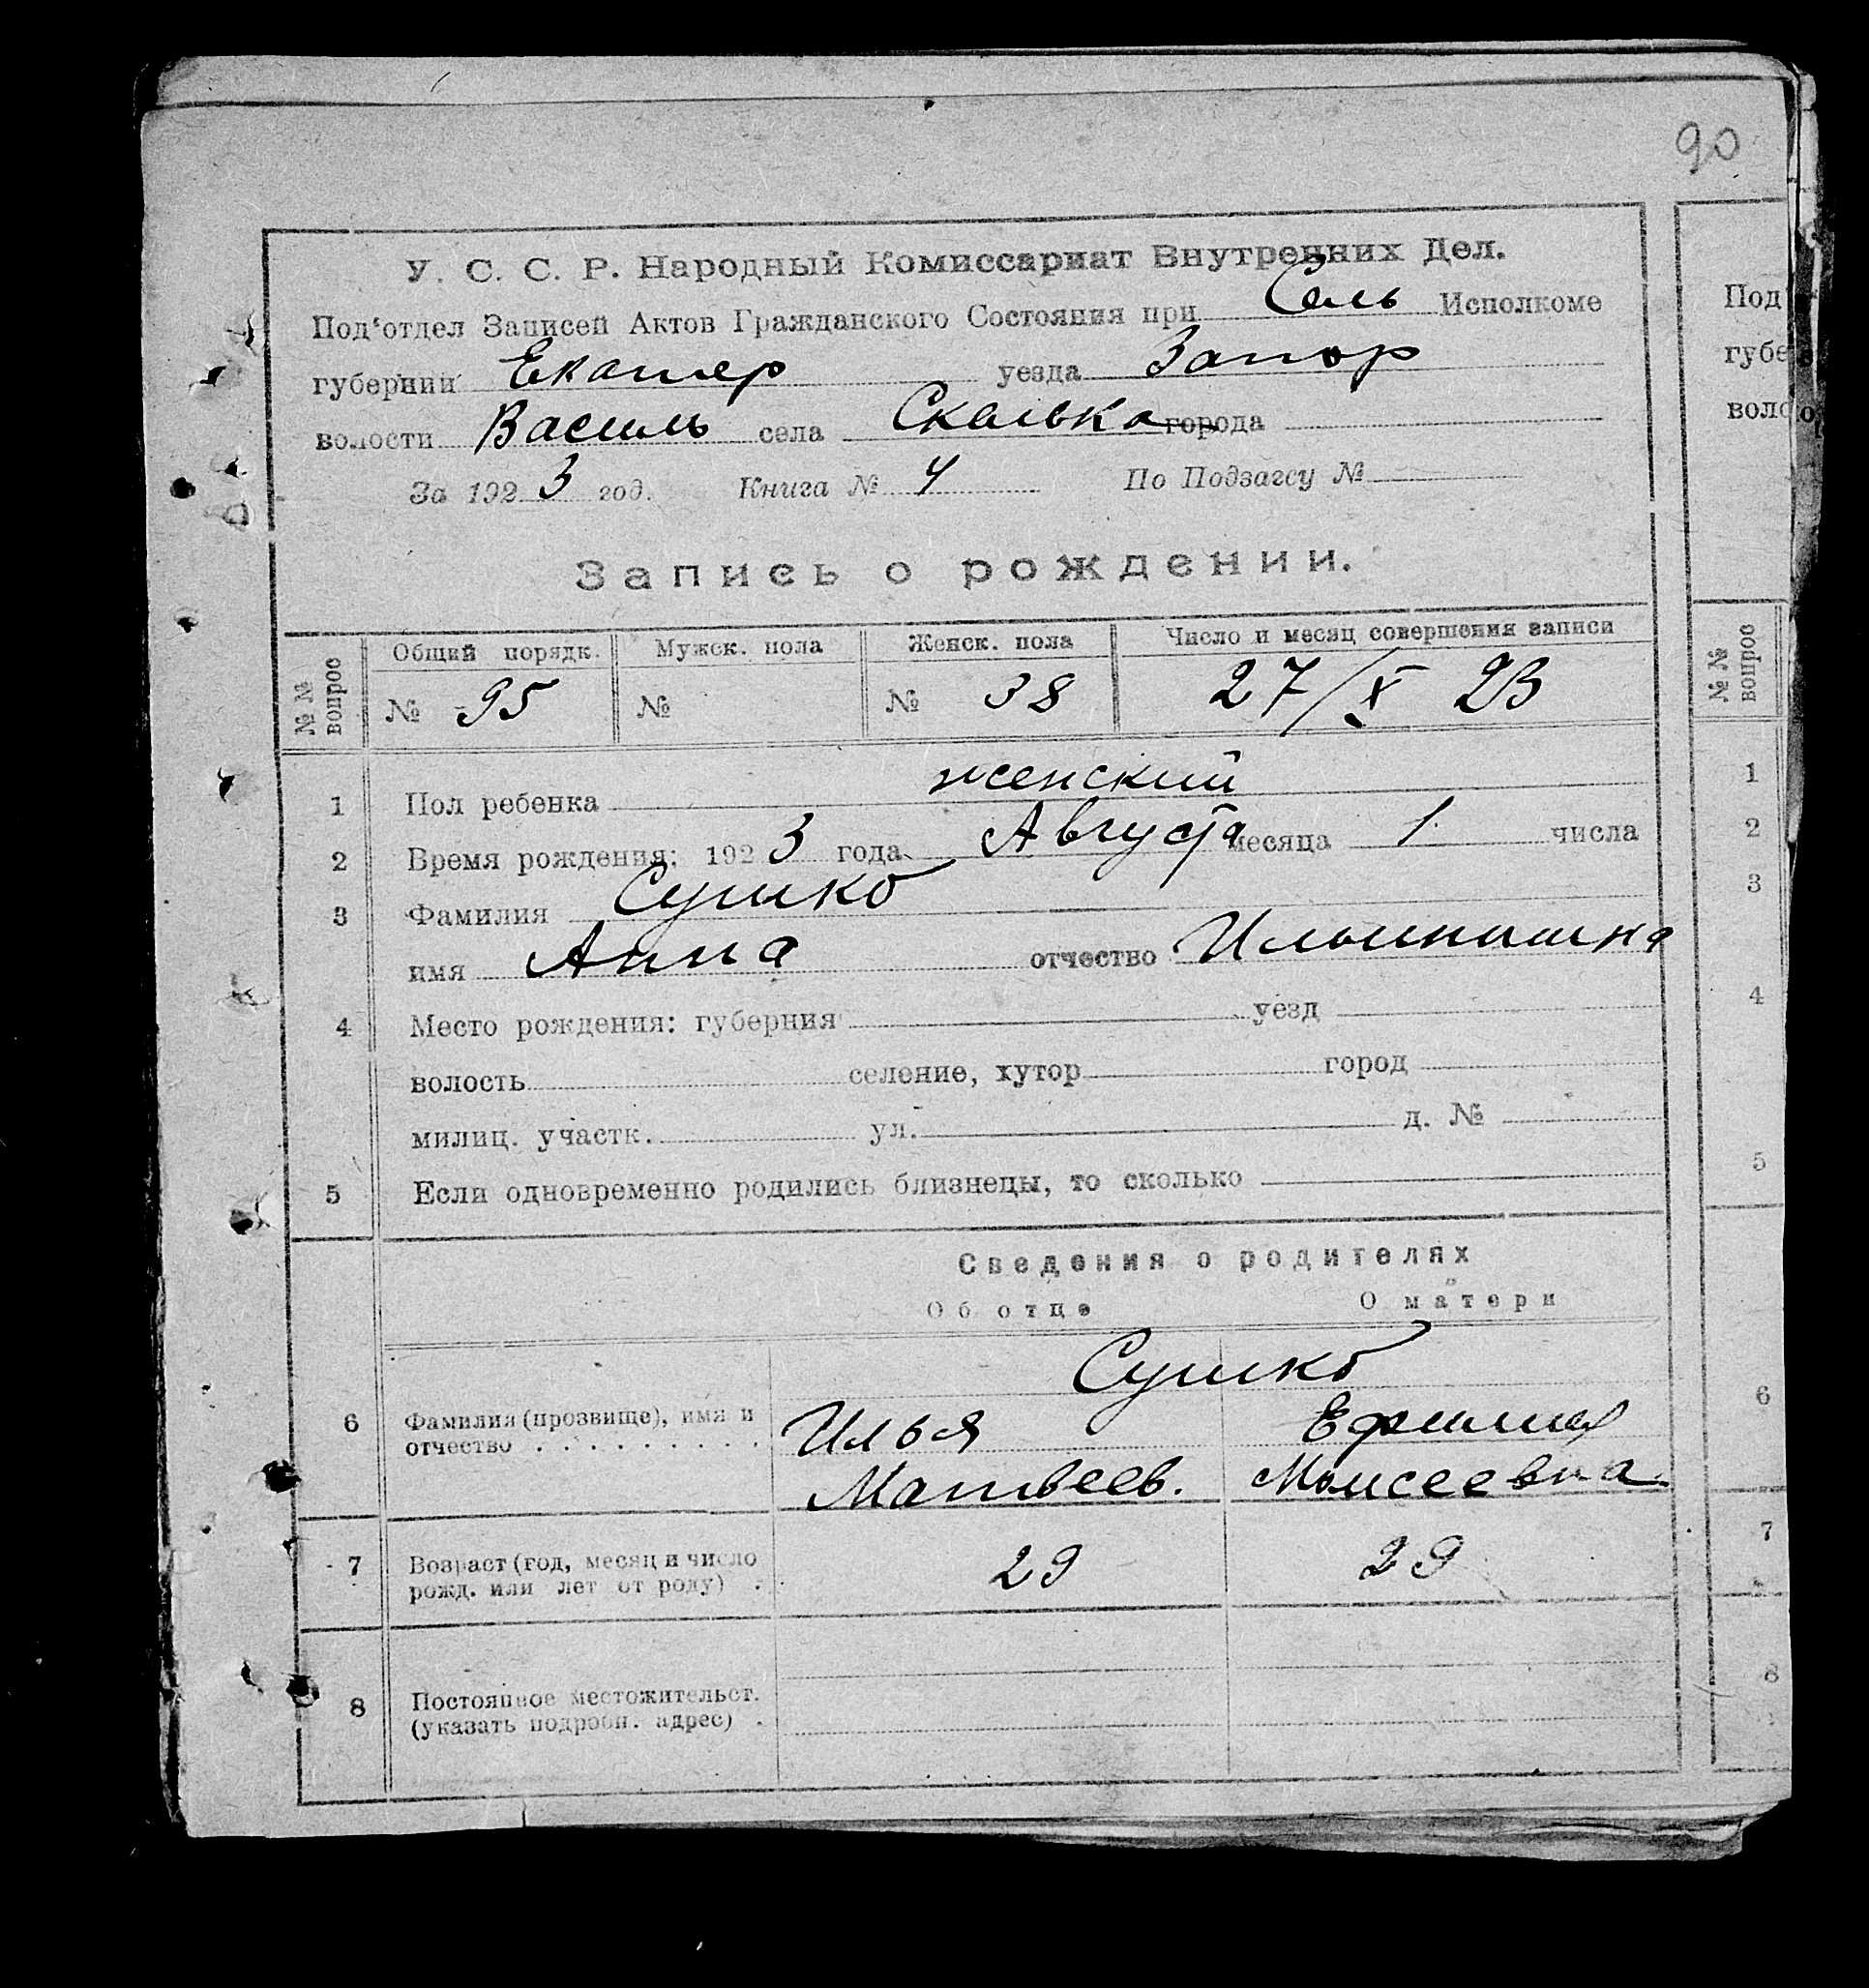 90
У. С. С. Р. Народный Комиссариат Внутренних Дел.
Под'отдел Записей Актов Гражданского Состояния при Сель Исполкоме
губернии Екатер уезда Запор
волости Василь села Скелька города
За 1923 год. Книга № 4 По Подзагсу №
Запись о рождении.
№ № вопрос Общий порядк. Мужск. пола Женск. пола Число и месяц совершения записи
№ 95 № № 38 27/X 23
1 Пол ребенка женский
2 Время рождения: 1923 года Августа месяца 1 числа
3 Фамилия Сушко
имя Анна отчество
4 Место рождения: губерния уезд
волость селение, хутор город
милиц. участк. ул. д. №
5 Если одновременно родились близнецы, то сколько
Сведения о родителях
Об отце О матери
Сушко
6 Фамилия (прозвище), имя и Илья
отчество Матвеев. Моисеевна
7 Возраст (год, месяц и число 29 29
рожд. или лет от роду)
8 Постоянное местожительст.
(указать подробн. адрес)
Под
губе
воло
№ № вопрос
1
2
3
4
5
6
7
8